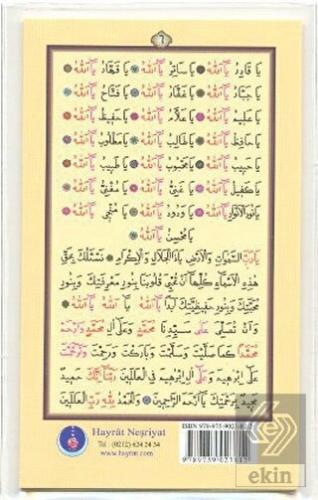 يَا قَادِرُ يَا اَللّٰهُ ❁ يَا سَاتِرُ يَا اَللّٰهُ ❁ يَا قَهَّارُ يَا اَللّٰهُ ❁
يَا جَبَّارُ يَا اَللّٰهُ ❁ يَا غَفَّارُ يَا اَللّٰهُ ❁ يَا فَتَّاحُ يَا اَللّٰهُ ❁
يَا عَلِيمُ يَا اَللّٰهُ ❁ يَا عَلَّامُ يَا اَللّٰهُ ❁ يَا حَفِيظُ يَا اَللّٰهُ ❁
يَا حَافِظُ يَا اَللّٰهُ ❁ يَا طَالِبُ يَا اَللّٰهُ ❁ يَا مَطْلُوبُ يَا اَللّٰهُ ❁
يَا حَبِيبُ يَا اَللّٰهُ ❁ يَا مَحْبُوبُ يَا اَللّٰهُ ❁ يَا طَبِيبُ يَا اَللّٰهُ ❁
يَا كَفِيلُ يَا اَللّٰهُ ❁ يَا غَنِىُّ يَا اَللّٰهُ ❁ يَا مُغْنِى يَا اَللّٰهُ ❁
يَا نُورَ الْاَنْوَارِ يَا اَللّٰهُ ❁ يَا وَدُودُ يَا اَللّٰهُ ❁ يَا مُنْجِى يَا اَللّٰهُ ❁
يَا مُحْسِنُ يَا اَللّٰهُ ❁
يَا رَبَّ السَّمٰوَاتِ وَالْاَرْضِ يَا ذَا الْجَلَالِ وَالْاِكْرَامِ ❁ نَسْئَلُكَ بِحَقِّ
هٰذِهِ الْاَسْمَاءِ كُلِّهَا اَنْ تُحْيِىَ قُلُوبَنَا بِنُورِ مَعْرِفَتِكَ وَبِنُورِ
مَحَبَّتِكَ وَبِنُورِ حَفِيظِيَّتِكَ اَبَدًا يَا اَللّٰهُ يَا اَللّٰهُ يَا اَللّٰهُ
وَاَنْ تُصَلِّىَ عَلٰى سَيِّدِنَا مُحَمَّدٍ وَعَلٰى اٰلِ مُحَمَّدٍ وَارْحَمْ
مُحَمَّدًا كَمَا صَلَّيْتَ وَسَلَّمْتَ وَبَارَكْتَ وَرَحِمْتَ وَتَرَحَّمْتَ
عَلٰى اِبْرٰهِيمَ وَعَلٰى اٰلِ اِبْرٰهِيمَ فِى الْعَالَمِينَ رَبَّنَا اِنَّكَ حَمِيدٌ
مَجِيدٌ بِرَحْمَتِكَ يَا اَرْحَمَ الرَّاحِمِينَ ❁ وَالْحَمْدُ لِلّٰهِ رَبِّ الْعَالَمِينَ
Hayrât Neşriyat
Tel : (0212) 624 24 34
www.hayrat.com
ekin